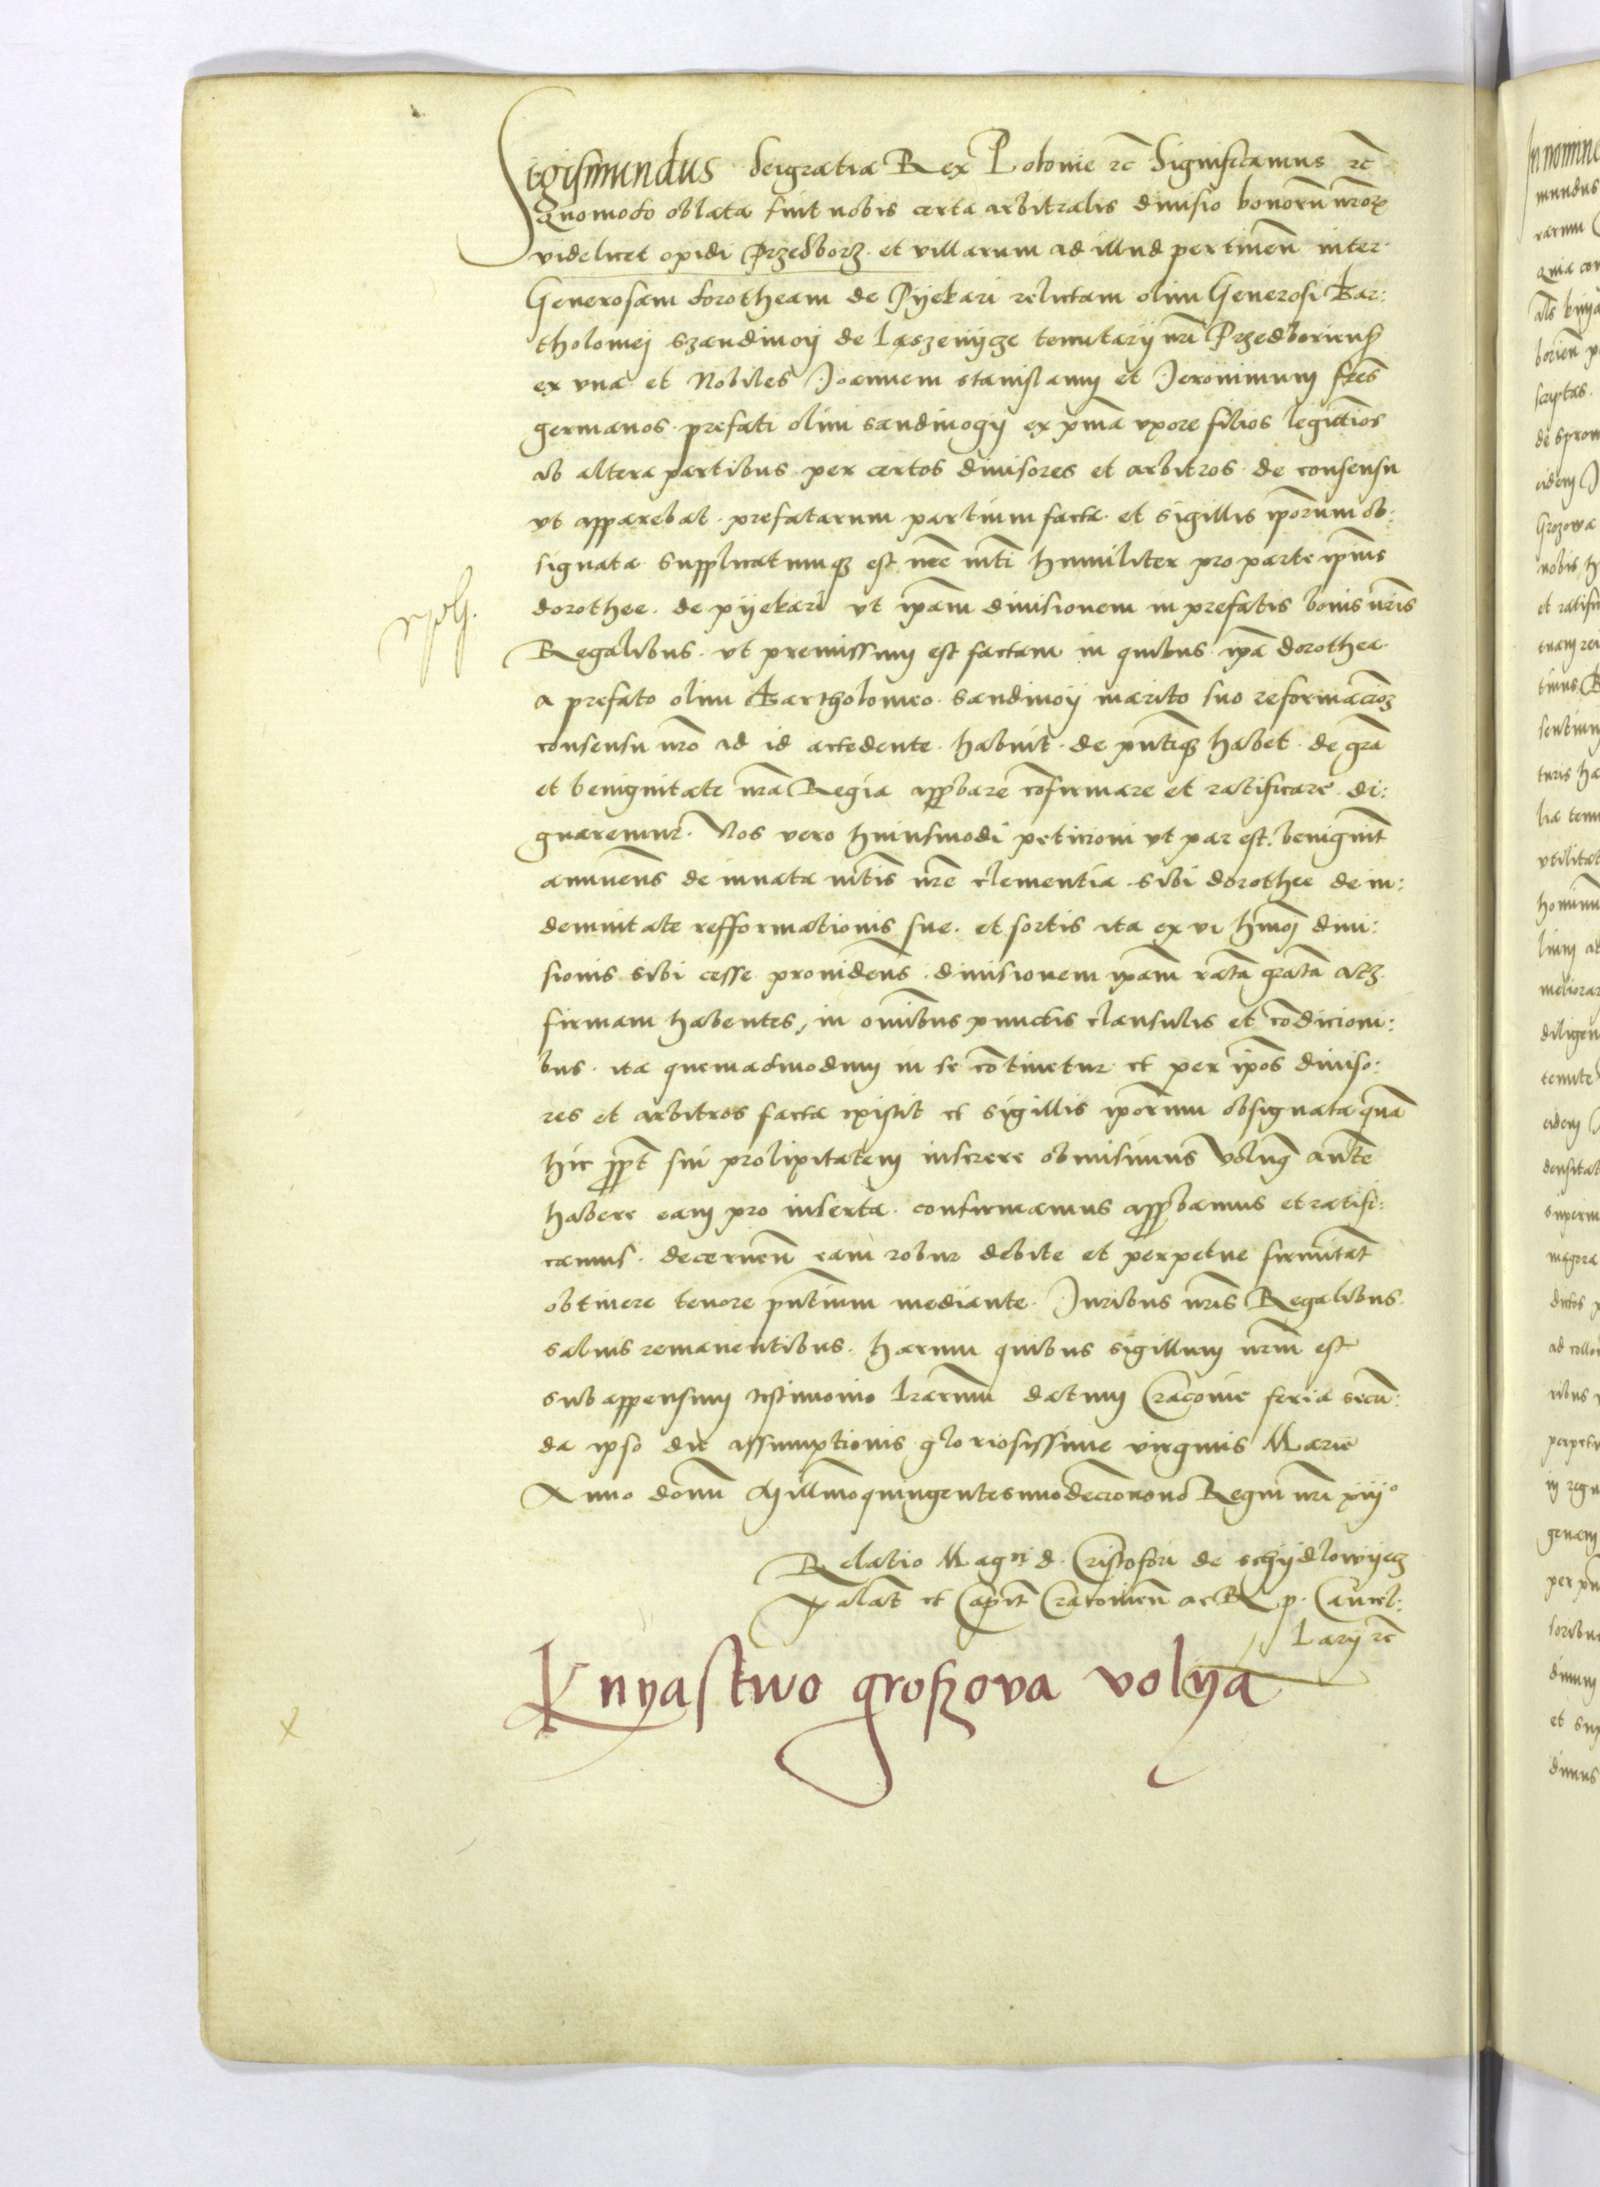 Sigismundus deigratia Rex Polonie rc Significamus rc
Quomodo oblata fuit nobis certa arbitralis diuisio bonoru nroꝝ
videlicet opidi Przedborz. et villarum ad illud pertinen̄ inter.
Generosam dorotheam de Pyekari relictam olim Generosi Bar:
tholomej Szandiuoy de Laszenycze tenutarij nrī Przedboriens̄
ex vna et Nobiles Joannem stanislaum et Jeronimum frēs
germanos. prefati olim sandiuogij ex pm̄a vxore filios legittīos
ab altera partibus per certos diuisores et arbitros. de consensu
vt apparebat. prefatarum partium facta. et sigillis ip̄orum ob:
signata supplicatumqꝫ est nr̄e mt̄i humiliter pro parte ip̄ius
dorothee. de pyekari vt ip̄am diuisionem in prefatis bonis nr̄is
Regalibus. vt premissum est factam in quibus ip̄a dorothea
a prefato olim Bartholomeo. sandiuoij marito suo reformac̄oēꝫ
consensu nrō ad id accedente. habuit. de pn̄tiqꝫ habet. de gr̄a
et benignitate nr̄a Regia app̄bare cōfirmare et ratificare. di:
gnaremur. Nos vero huiusmodi peticioni vt par est. benignit̄
annuen̄s de innata mt̄is nr̄e clementia sibi dorothee de in:
demnitate refformationis sue. et sortis ita ex vi hmōj diui:
sionis sibi cesse prouiden̄s. diuisionem ip̄am ratā gratā atqꝫ
firmam habentes, in om̄ibus punctis clausulis et cōdicioni:
bus. ita quemadmodum in se cōtinetur et per ip̄os diuiso:
res et arbitros facta existit et sigillis ip̄orum obsignata quā
hic ꝓpt̄ sui prolixitatem inserere obmisimus volum̄qꝫ aut̄e
habere eam pro inserta. confirmamus app̄bamus et ratifi:
camus. decernen̄ eam robur debite et perpetue firmitat̄
obtinere tenore pn̄tium mediante. Juribus nr̄is Regalibus.
saluis remanentibus. harum quibus sigillum nrm̄ est
subappensum testimonio lr̄arum datum Cracouie feria secū:
da ipso die assumptionis gloriosissime virginis Marie
Anno domī Millmōquingentesimodecīonono Regni nrī xiijo
Relatio Magci d. Cristofori de schydlowyecz
Palat̄ et Capit̄ Cracouien̄ ac R. p. Cancel:
Larij rc
Knyastwo großova volya
x